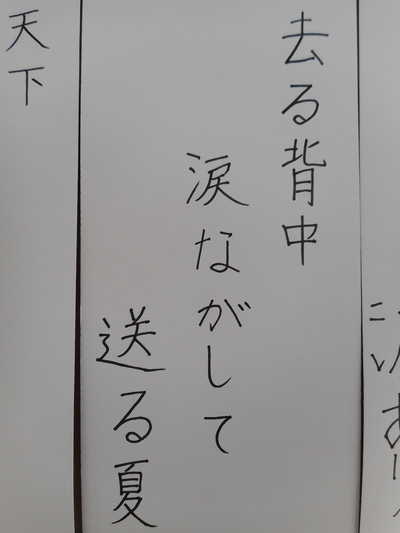 去る背中
涙ながして
送る夏
天下